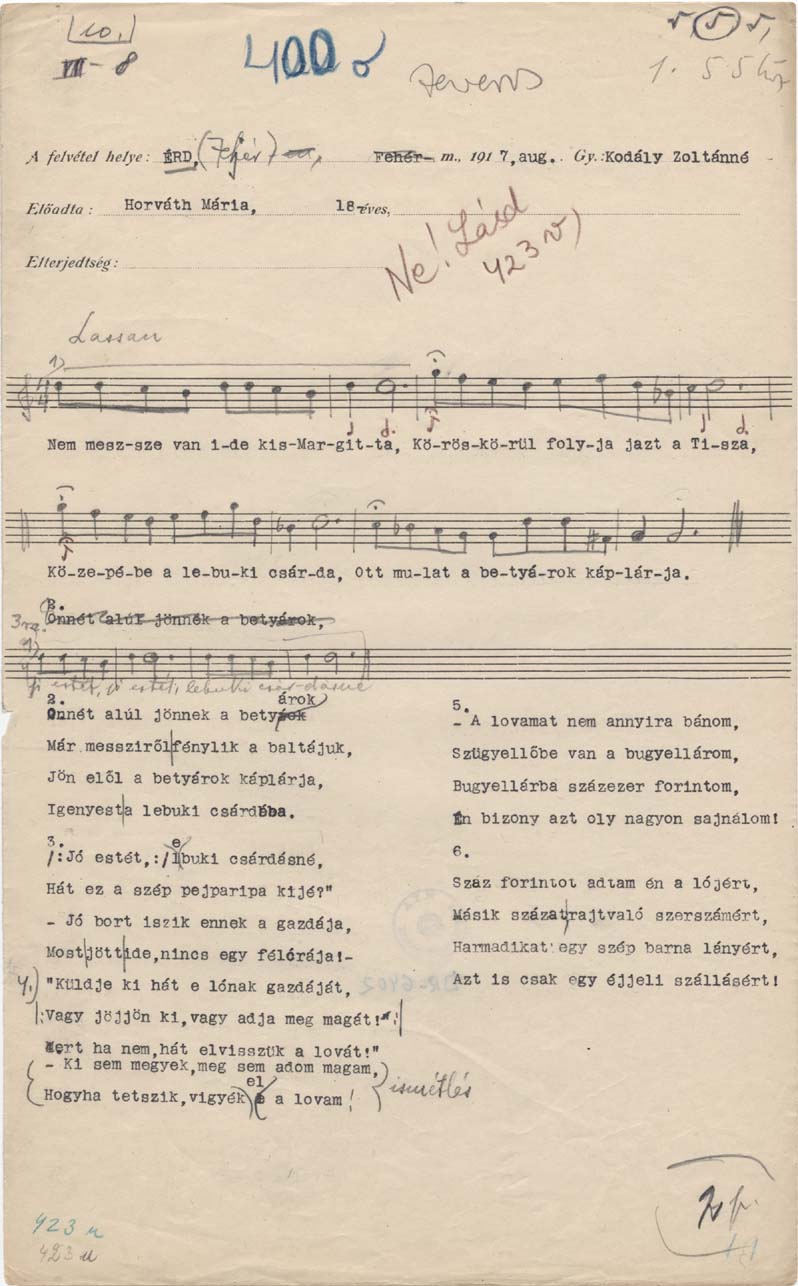 (10.)
VII - 8
400
5, 5 5,
1. 5 5
A felvétel helye: ÉRD, (Fejér) m, Fehér- m., 1917, aug. Gy.: Kodály Zoltánné -
Előadta: Horváth Mária, 18 éves,
Elterjedtség:
Ne! Lásd
423
Lassan
1)
Nem mesz-sze van i-de kis-Mar-git-ta, Kö-rös-kö-rül foly-ja jazt a Ti-sza,
Kö-ze-pé-be a le-bu-ki csár-da, Ott mu-lat a be-tyá-rok káp-lár-ja.
2.
Önnét alúl jönnék a betyárok,
3.
1)
Jó estét, jó estét, lebuki csár-dásné
2.
Onnét alúl jönnek a betyárok
Már messziről fénylik a baltájuk,
Jön elől a betyárok káplárja,
Igenyest a lebuki csárdába.
3.
/:Jó estét,:/ lebuki csárdásné,
Hát ez a szép pejparipa kijé?"
- Jó bort iszik ennek a gazdája,
Most jött ide, nincs egy félórája!-
4.) "Küldje ki hát e lónak gazdáját,
|:Vagy jöjjön ki, vagy adja meg magát!:|
Mert ha nem, hát elvisszük a lovát!"
- Ki sem megyek, meg sem adom magam,
Hogyha tetszik, vigyék el a lovam! ismétlés
5.
- A lovamat nem annyira bánom,
Szügyellőbe van a bugyellárom,
Bugyellárba százezer forintom,
Én bizony azt oly nagyon sajnálom!
6.
Száz forintot adtam én a lójért,
Másik százat rajtvaló szerszámért,
Harmadikat egy szép barna lányért,
Azt is csak egy éjjeli szállásért!
BR-6402
423 u
423 u